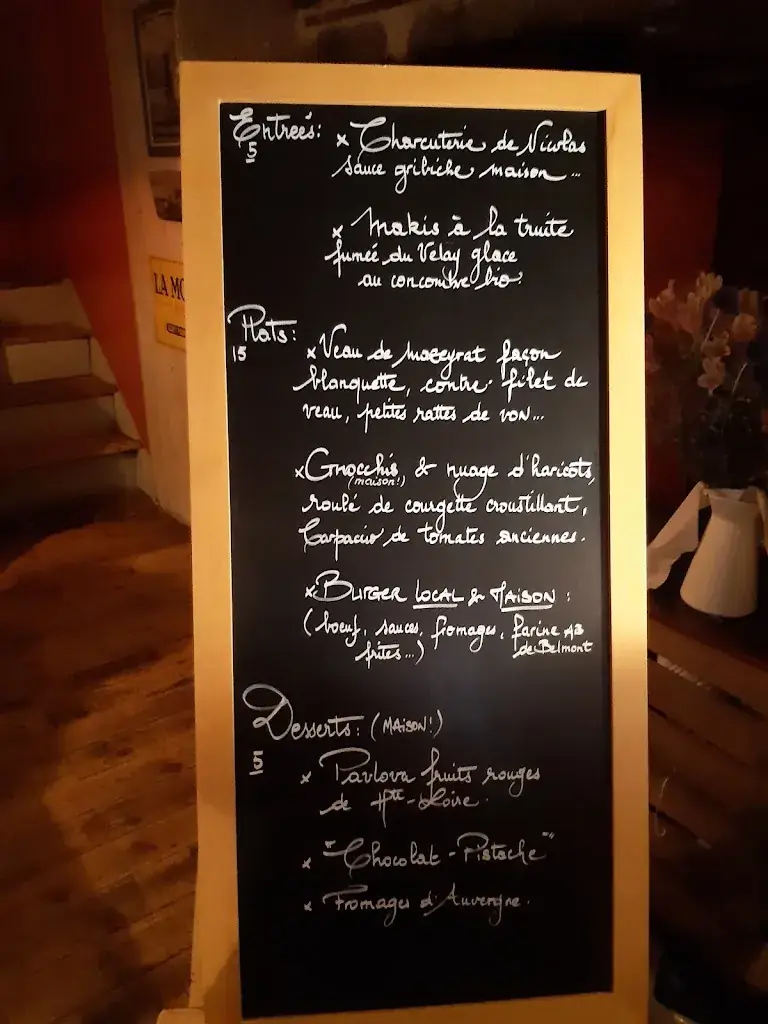 Entrées: x Charcuterie de Nicolas
5
sauce gribiche maison...
x Makis à la truite
fumée du Velay glace
au concombre bio.
Plats:
15
x Veau de Mazeyrat façon
blanquette, contre filet de
veau, petites rattes de von...
x Gnocchis, & nuage d'haricots,
(maison!)
roulé de courgette croustillant,
Carpaccio de tomates anciennes.
x BURGER LOCAL & MAISON :
(boeuf, sauces, fromages, farine AB
frites...) de Belmont
Desserts: (MAISON!)
5
x Pavlova fruits rouges
de Hte-Loire.
x "Chocolat - Pistache"
x Fromages d'Auvergne.
LA MO